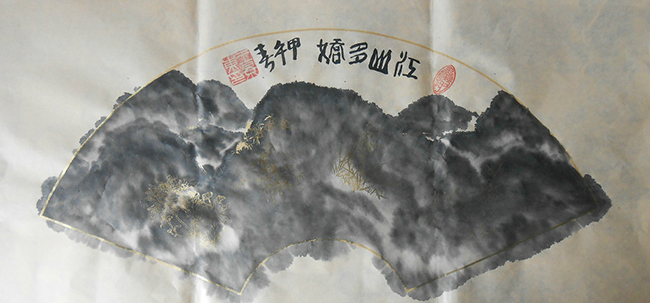 江山多嬌 甲午春